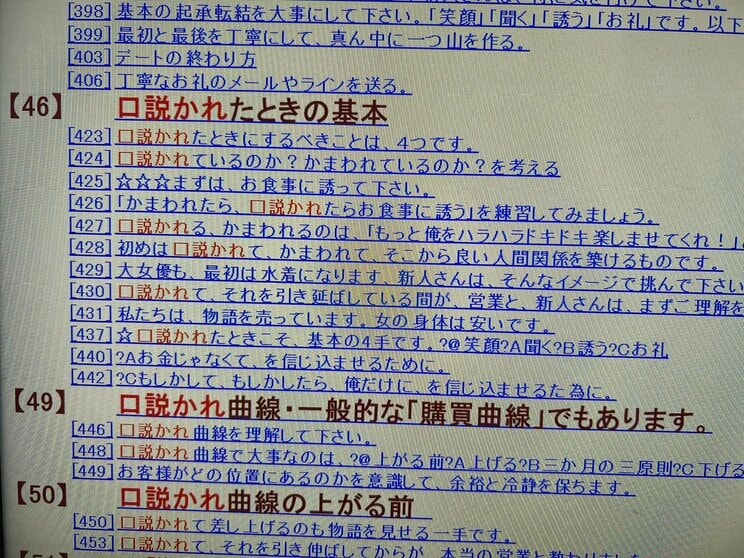 [398] 基本の起承転結を大事にして下さい。「笑顔」「聞く」「誘う」「お礼」です。以下
[399] 最初と最後を丁寧にして、真ん中に一つ山を作る。
[403] デートの終わり方
[406] 丁寧なお礼のメールやラインを送る。
【46】 口説かれたときの基本
[423] 口説かれたときにするべきことは、4つです。
[424] 口説かれているのか？かまわれているのか？を考える
[425] ☆☆☆まずは、お食事に誘って下さい。
[426] 「かまわれたら、口説かれたらお食事に誘う」を練習してみましょう。
[427] 口説かれる、かまわれるのは、「もっと俺をハラハラドキドキ楽しませてくれ！」。
[428] 初めは口説かれて、かまわれて、そこから良い人間関係を築けるものです。
[429] 大女優も、最初は水着になります、新人さんは、そんなイメージで挑んで下さい
[430] 口説かれて、それを引き延ばしている間が、営業と、新人さんは、まずご理解を
[431] 私たちは、物語を売っています。女の身体は安いです。
[437] ☆口説かれたときこそ、基本の4手です。?@笑顔?A聞く?B誘う?Cお礼
[440] ?Aお金じゃなくて、を信じ込ませるために。
[442] ?Cもしかして、もしかしたら、俺だけに、を信じ込ませるた為に。
【49】 口説かれ曲線・一般的な「購買曲線」でもあります。
[446] 口説かれ曲線を理解して下さい。
[448] 口説かれ曲線で大事なのは、?@上がる前?A上げる?B三か月の三原則?C下げる
[449] お客様がどの位置にあるのかを意識して、余裕と冷静を保ちます。
【50】 口説かれ曲線の上がる前
[450] 口説かれて差し上げるのも物語を見せる一手です。
[453] 口説かれて、それを引き伸ばしてからが、本当の営業と教わりました